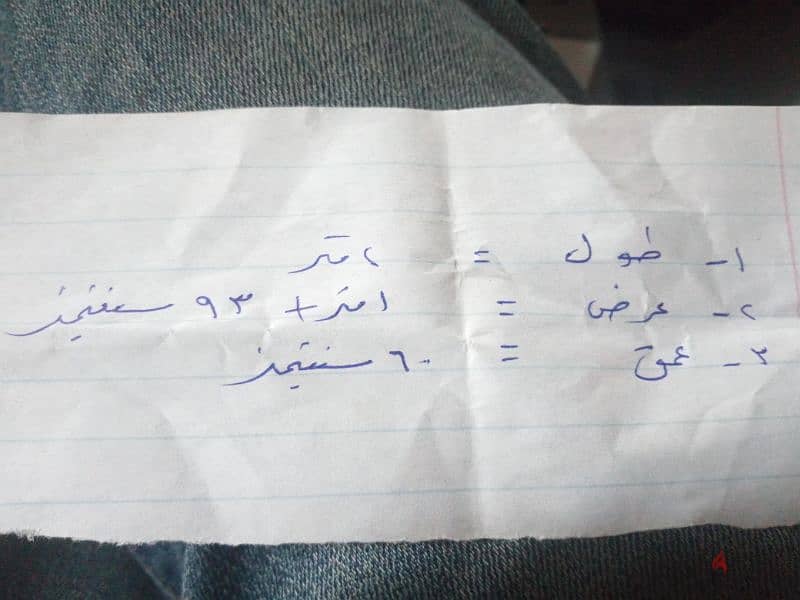 ١- طول = ٢ متر
٢- عرض = ١ متر + ٩٣ سنتيمتر
٣- عمق = ٦٠ سنتيمتر